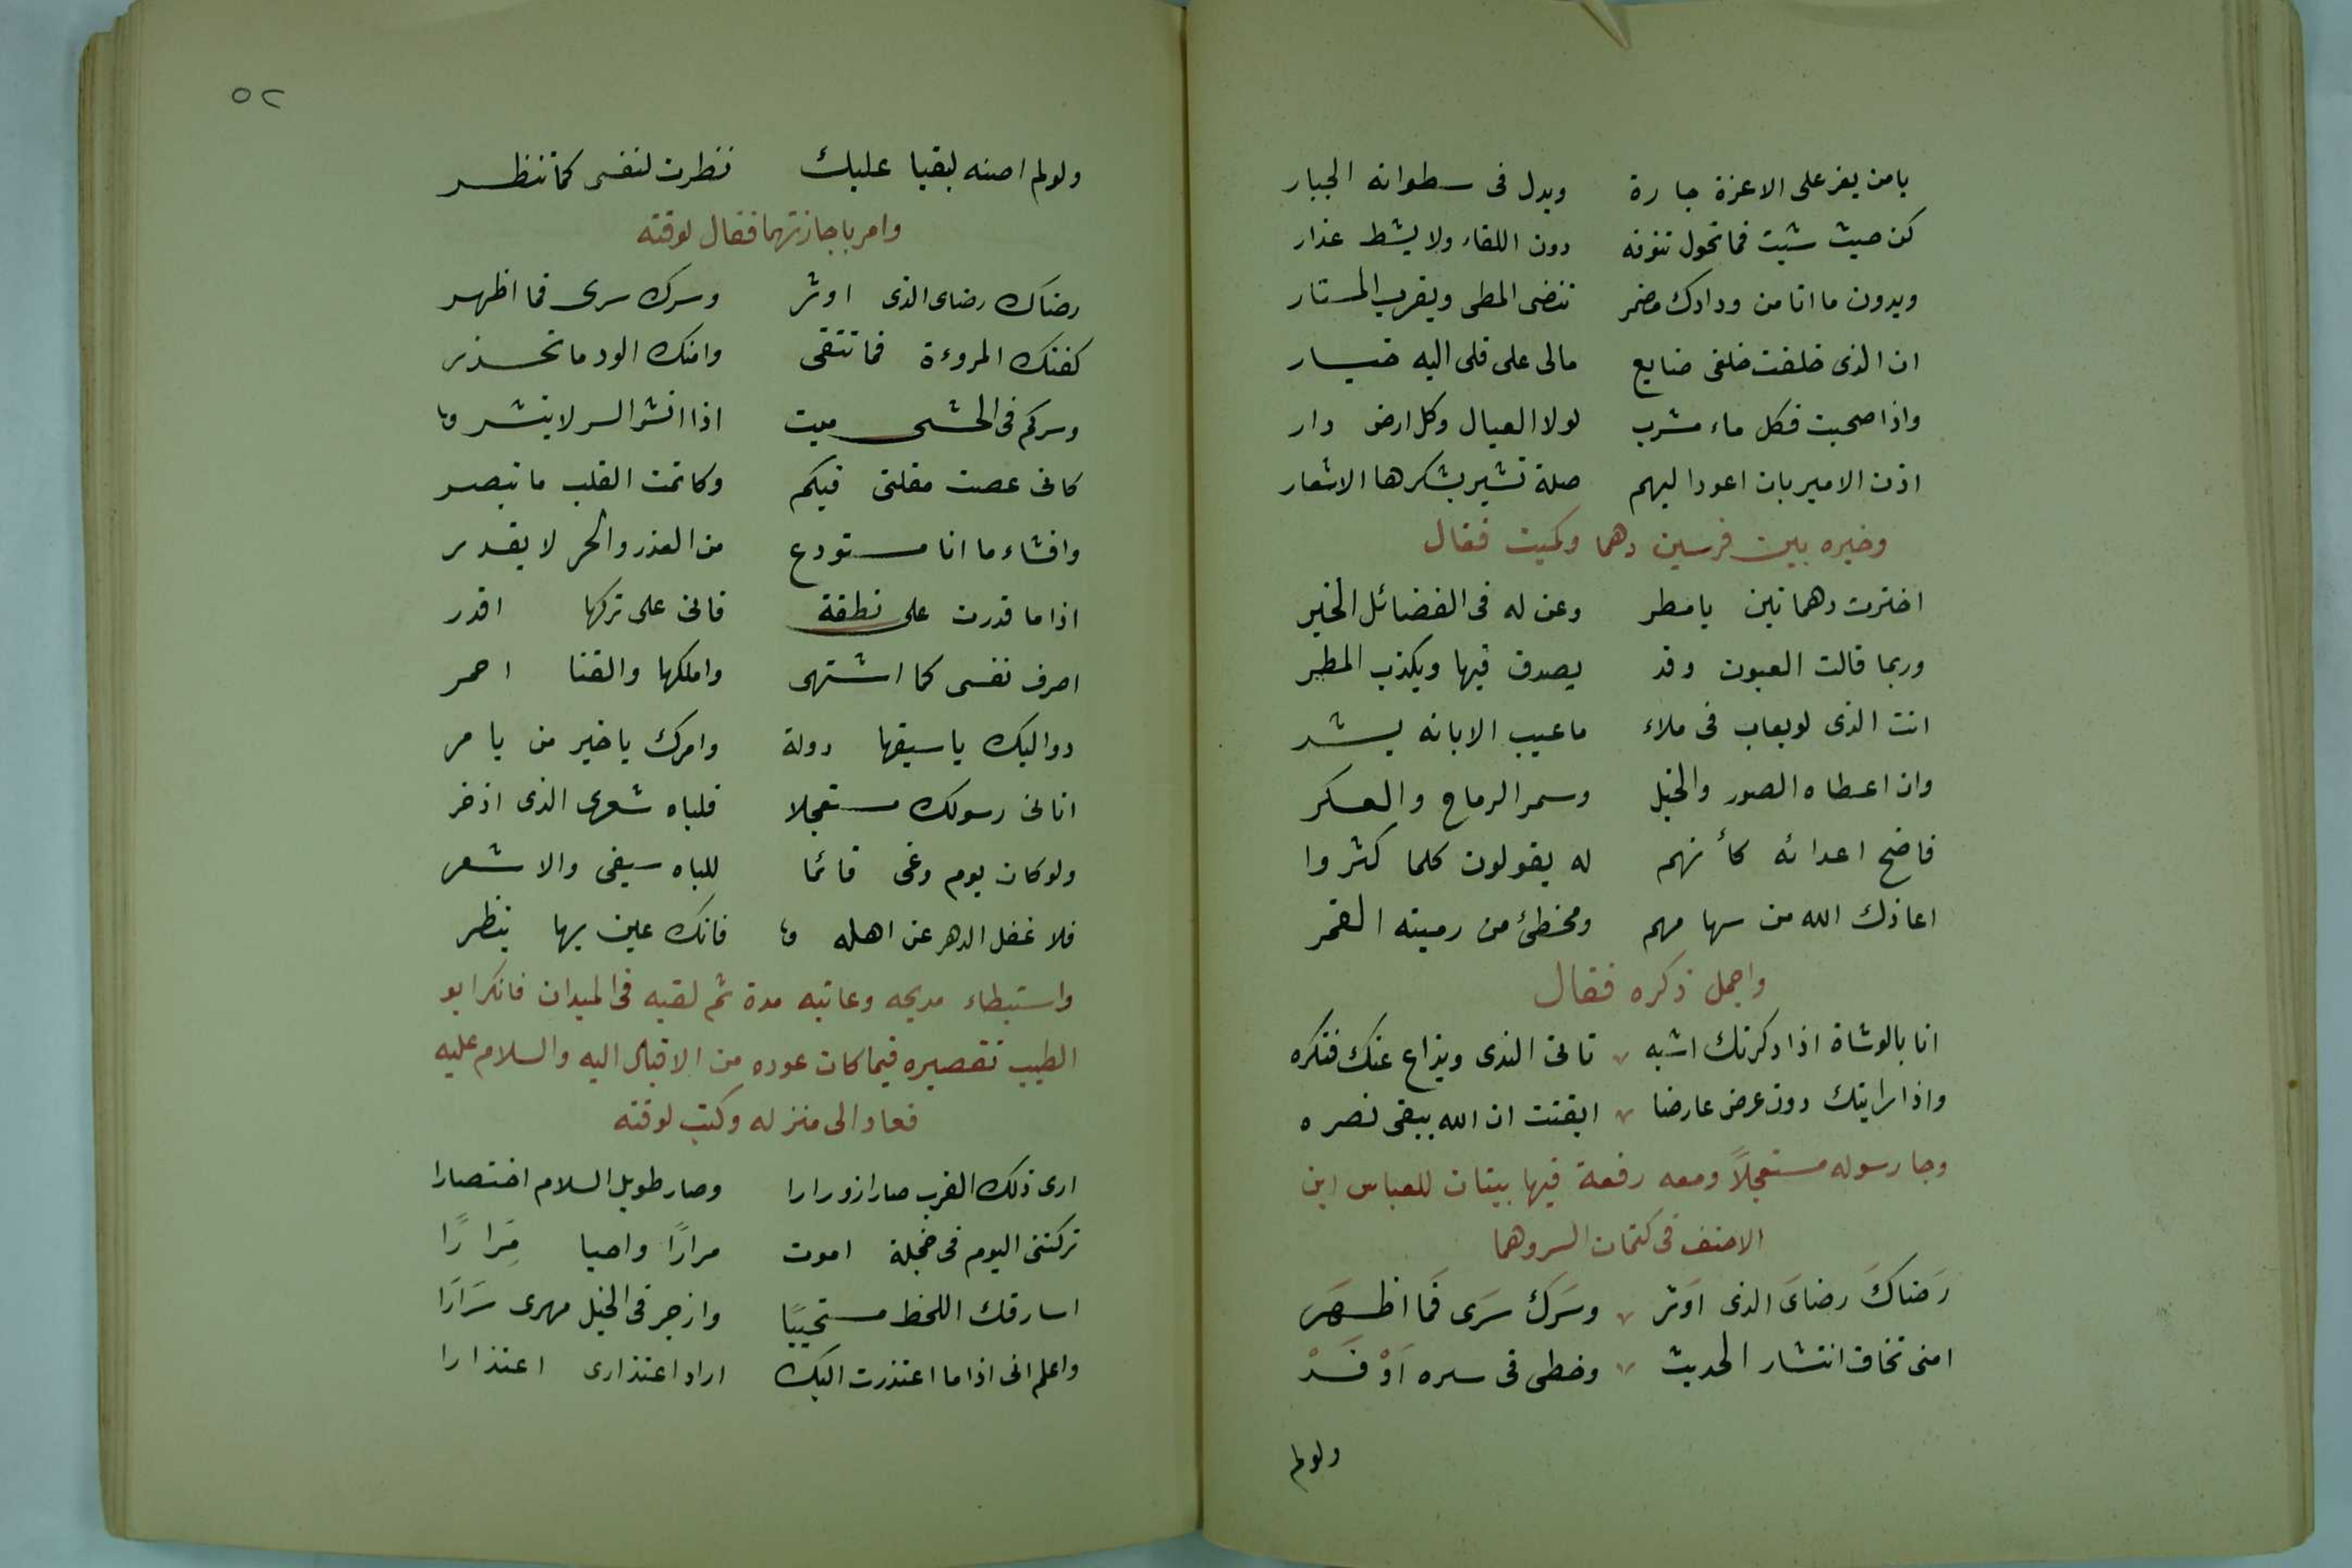 يامن يعز على الاعزة جارة ويدل فى سطوانه الجبار
كن حيث شيت فما تحول تنوفه دون اللقاء ولا يشط عذار
وبدون ما انا من ودادك مضمر تنضى المطى ويقرب المستار
ان الذى خلفت خلفى ضايع مالى على قلى اليه خيار
واذا صحبت فكل ماء مشرب لولا العيال وكل ارض دار
اذن الامير بان اعود اليهم صلة تشير بشكرها الاشعار
وخيره بين فرسين دهما وكميت فقال
اخترت دهماتين يا مطر وعن له فى الفضائل الخير
وربما قالت العيون وقد يصدق فيها ويكذب المطر
انت الذى لو يعاب فى ملاء ماعيب الا بانه يشر
وان اعطاه الصور والخيل وسمر الرماح والعسكر
فاضح اعدائه كأنهم له يقولون كلما كثروا
اعاذك الله من سهامهم ومخطئ من رميته القمر
واجمل ذكره فقال
انا بالوشاة اذا ذكرتك اشبه تانى الندى ويذاع عنك فتكره
واذا رايتك دون عرض عارضا ايقنت ان الله يبقى نصره
وجا رسوله مستعجلاً ومعه رقعة فيها بيتان للعباس ابن
الاحنف فى كتمان السر وهما
رَضاكَ رضاىَ الذى اَوَثر وسَرَكَ سَرَى فَما اظهَر
امنى تخاف انتشار الحديث وخطى فى سره اَوْفَدْ
ولولم
٥٢
ولولم اصنه لبقيا عليك نظرت لنفسى كما تنظر
وامر باجازتهما فقال لوقته
رضاك رضاى الذى اوثر وسرك سرى فما اظهر
كفتك المروءة فما تتقى وامنك الود ما تحذر
وسركم فى الحشى ميت اذا انشر السر لا ينشر
كانى عصت مقلتى فيكم وكاتمت القلب ما تبصر
وافشاء ما انا مستودع من الغدر والحر لا يغدر
اذا ما قدرت على نطقة فانى على تركها اقدر
اصرف نفسى كما اشتهى واملكها والقنا احمر
دواليك يا سيقها دولة وامرك يا خير من يامر
اتانى رسولك مستعجلا فلباه شعرى الذى اذخر
ولو كان يوم وغى قائما للباه سيفى والاشعر
فلا غفل الدهر عن اهله فانك عين بها ينظر
واستبطاء مديحه وعاتبه مدة ثم لقيه فى الميدان فانكر ابو
الطيب تقصيره فيما كان عوده من الاقبال اليه والسلام عليه
فعاد الى منزله وكتب لوقته
ارى ذلك القرب صار ازورارا وصار طويل السلام اختصارا
تركتنى اليوم فى خجلة اموت مرارًا واحيا مِرَارًا
اسارقك اللحظ مستحييًا وازجر فى الخيل مهرى سَرَارَا
واعلم انى اذا ما اعتذرت اليك اراد اعتذارى اعتذارا